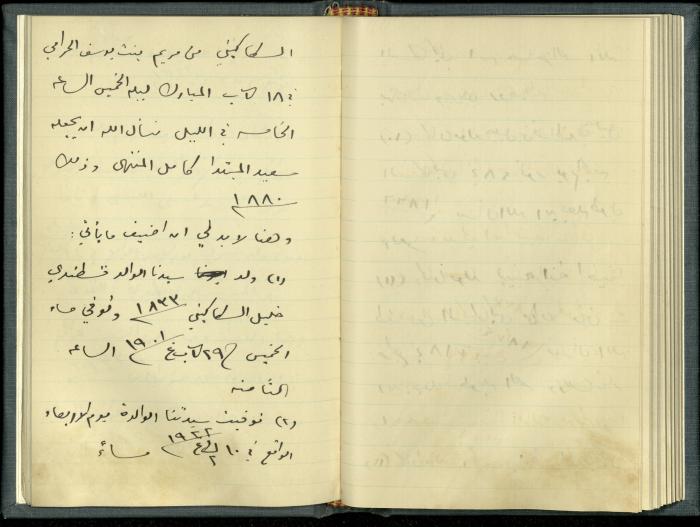 السكاكيني من مريم بنت يوسف الحرامي
في ١٨ ك المبارك ليلة الخميس الساعة
الخامسة في الليل نسأل الله ان يجعله
سعيد المبتدا كامل المنتهى وذلك
١٨٨٠
وهنا لا بد لي ان اضيف ما يأتي:
(١) ولد سيدنا الوالد قسطندي
خليل السكاكيني ١٨٣٣ وتوفي مساء
الخميس ٢٩ ١٩٠١ الساعة
الثامنة
(٢) توفيت سيدتنا الوالدة يوم الاربعاء
الواقع في ١٠ مساءً